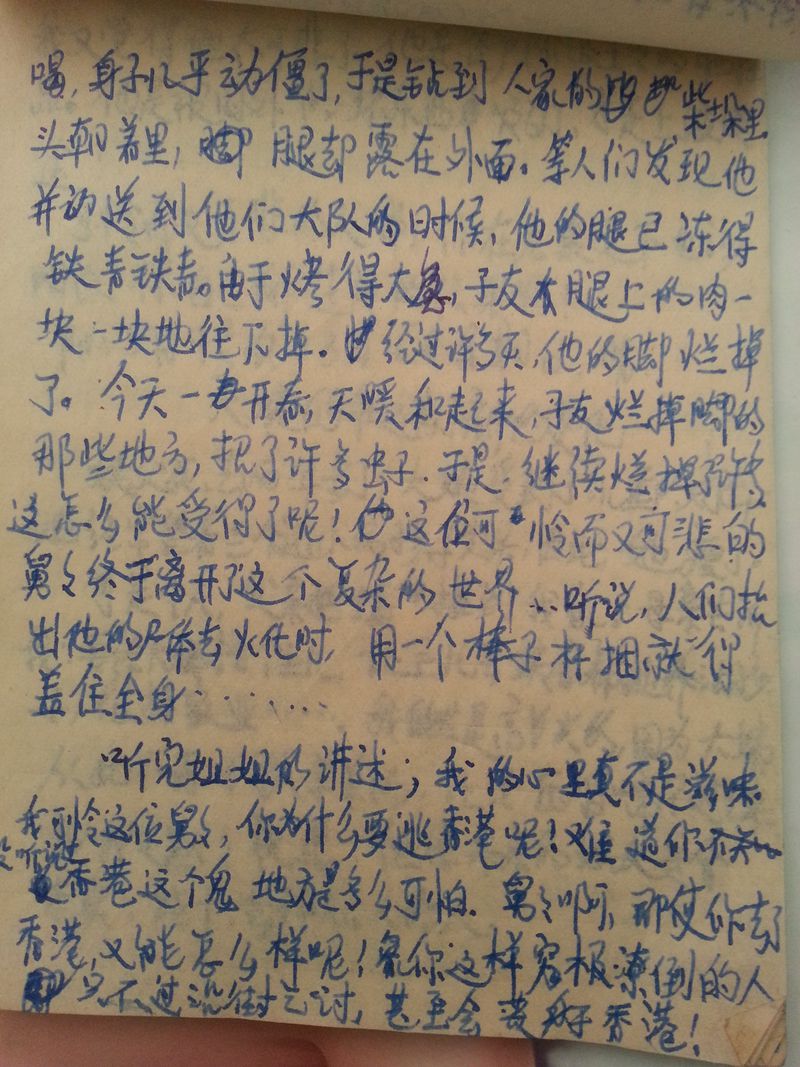 喝,身子几乎动僵了,于是钻到人家的柴垛里
头朝着里,脚腿却露在外面。等人们发现他
并动送到他们大队的时候,他的腿已冻得
铁青铁青。由于烤得太急,子友腿上的肉一
块一块地往下掉。经过许多天,他的脚烂掉
了。今天一开春,天暖和起来,子友烂掉脚的
那些地方,招了许多虫子.于是.继续烂掉了许多
这怎么能受得了呢!这位可怜而又可悲的
舅舅终于离开了这个复杂的世界...听说,人们抬
出他的尸体去火化时,用一个棒子秆捆就得
盖住全身.......
听完姐姐的讲述,我的心里真不是滋味
我可怜这位舅舅,你为什么要逃香港呢!难道你不知
没听说过
香港这个鬼地方是多么可怕.舅舅啊,即使你去了
香港,又能怎么样呢!像你这样穷极潦倒的人
只不过沿街乞讨,甚至会香港!